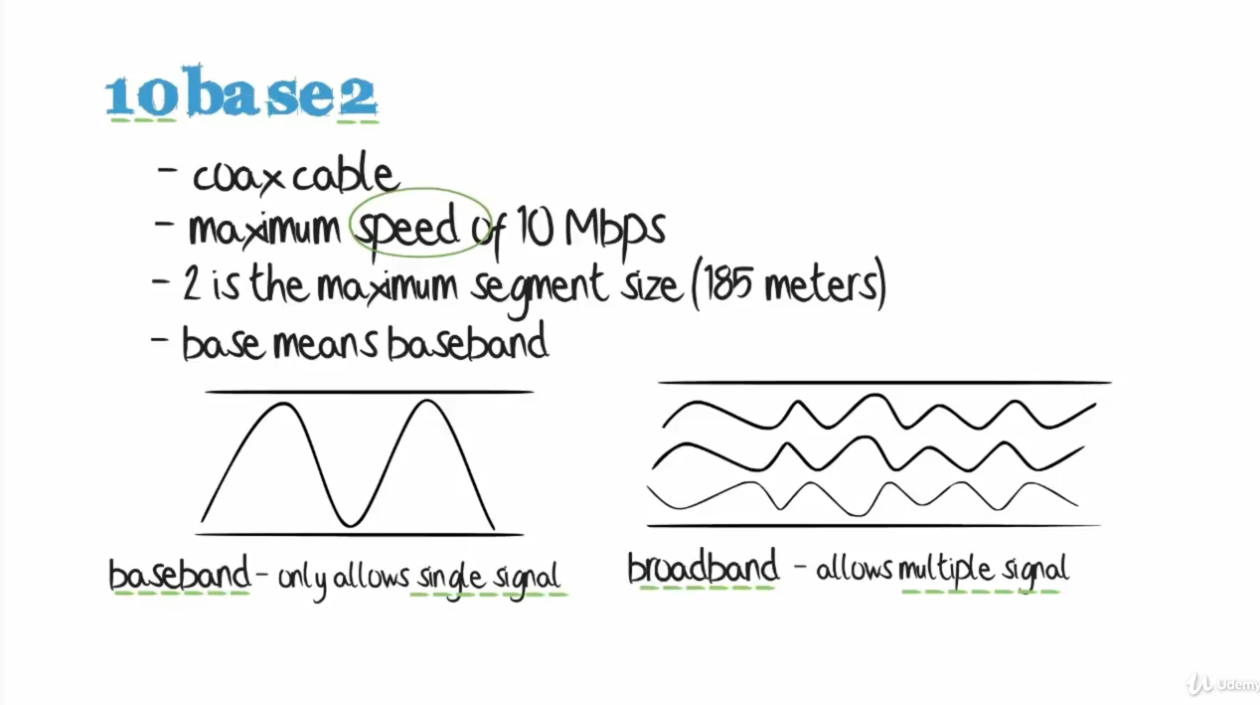 10base2
- coax cable
- maximum speed of 10 Mbps
- 2 is the maximum segment size (185 meters)
- base means baseband
baseband - only allows single signal
broadband - allows multiple signal
Udemy